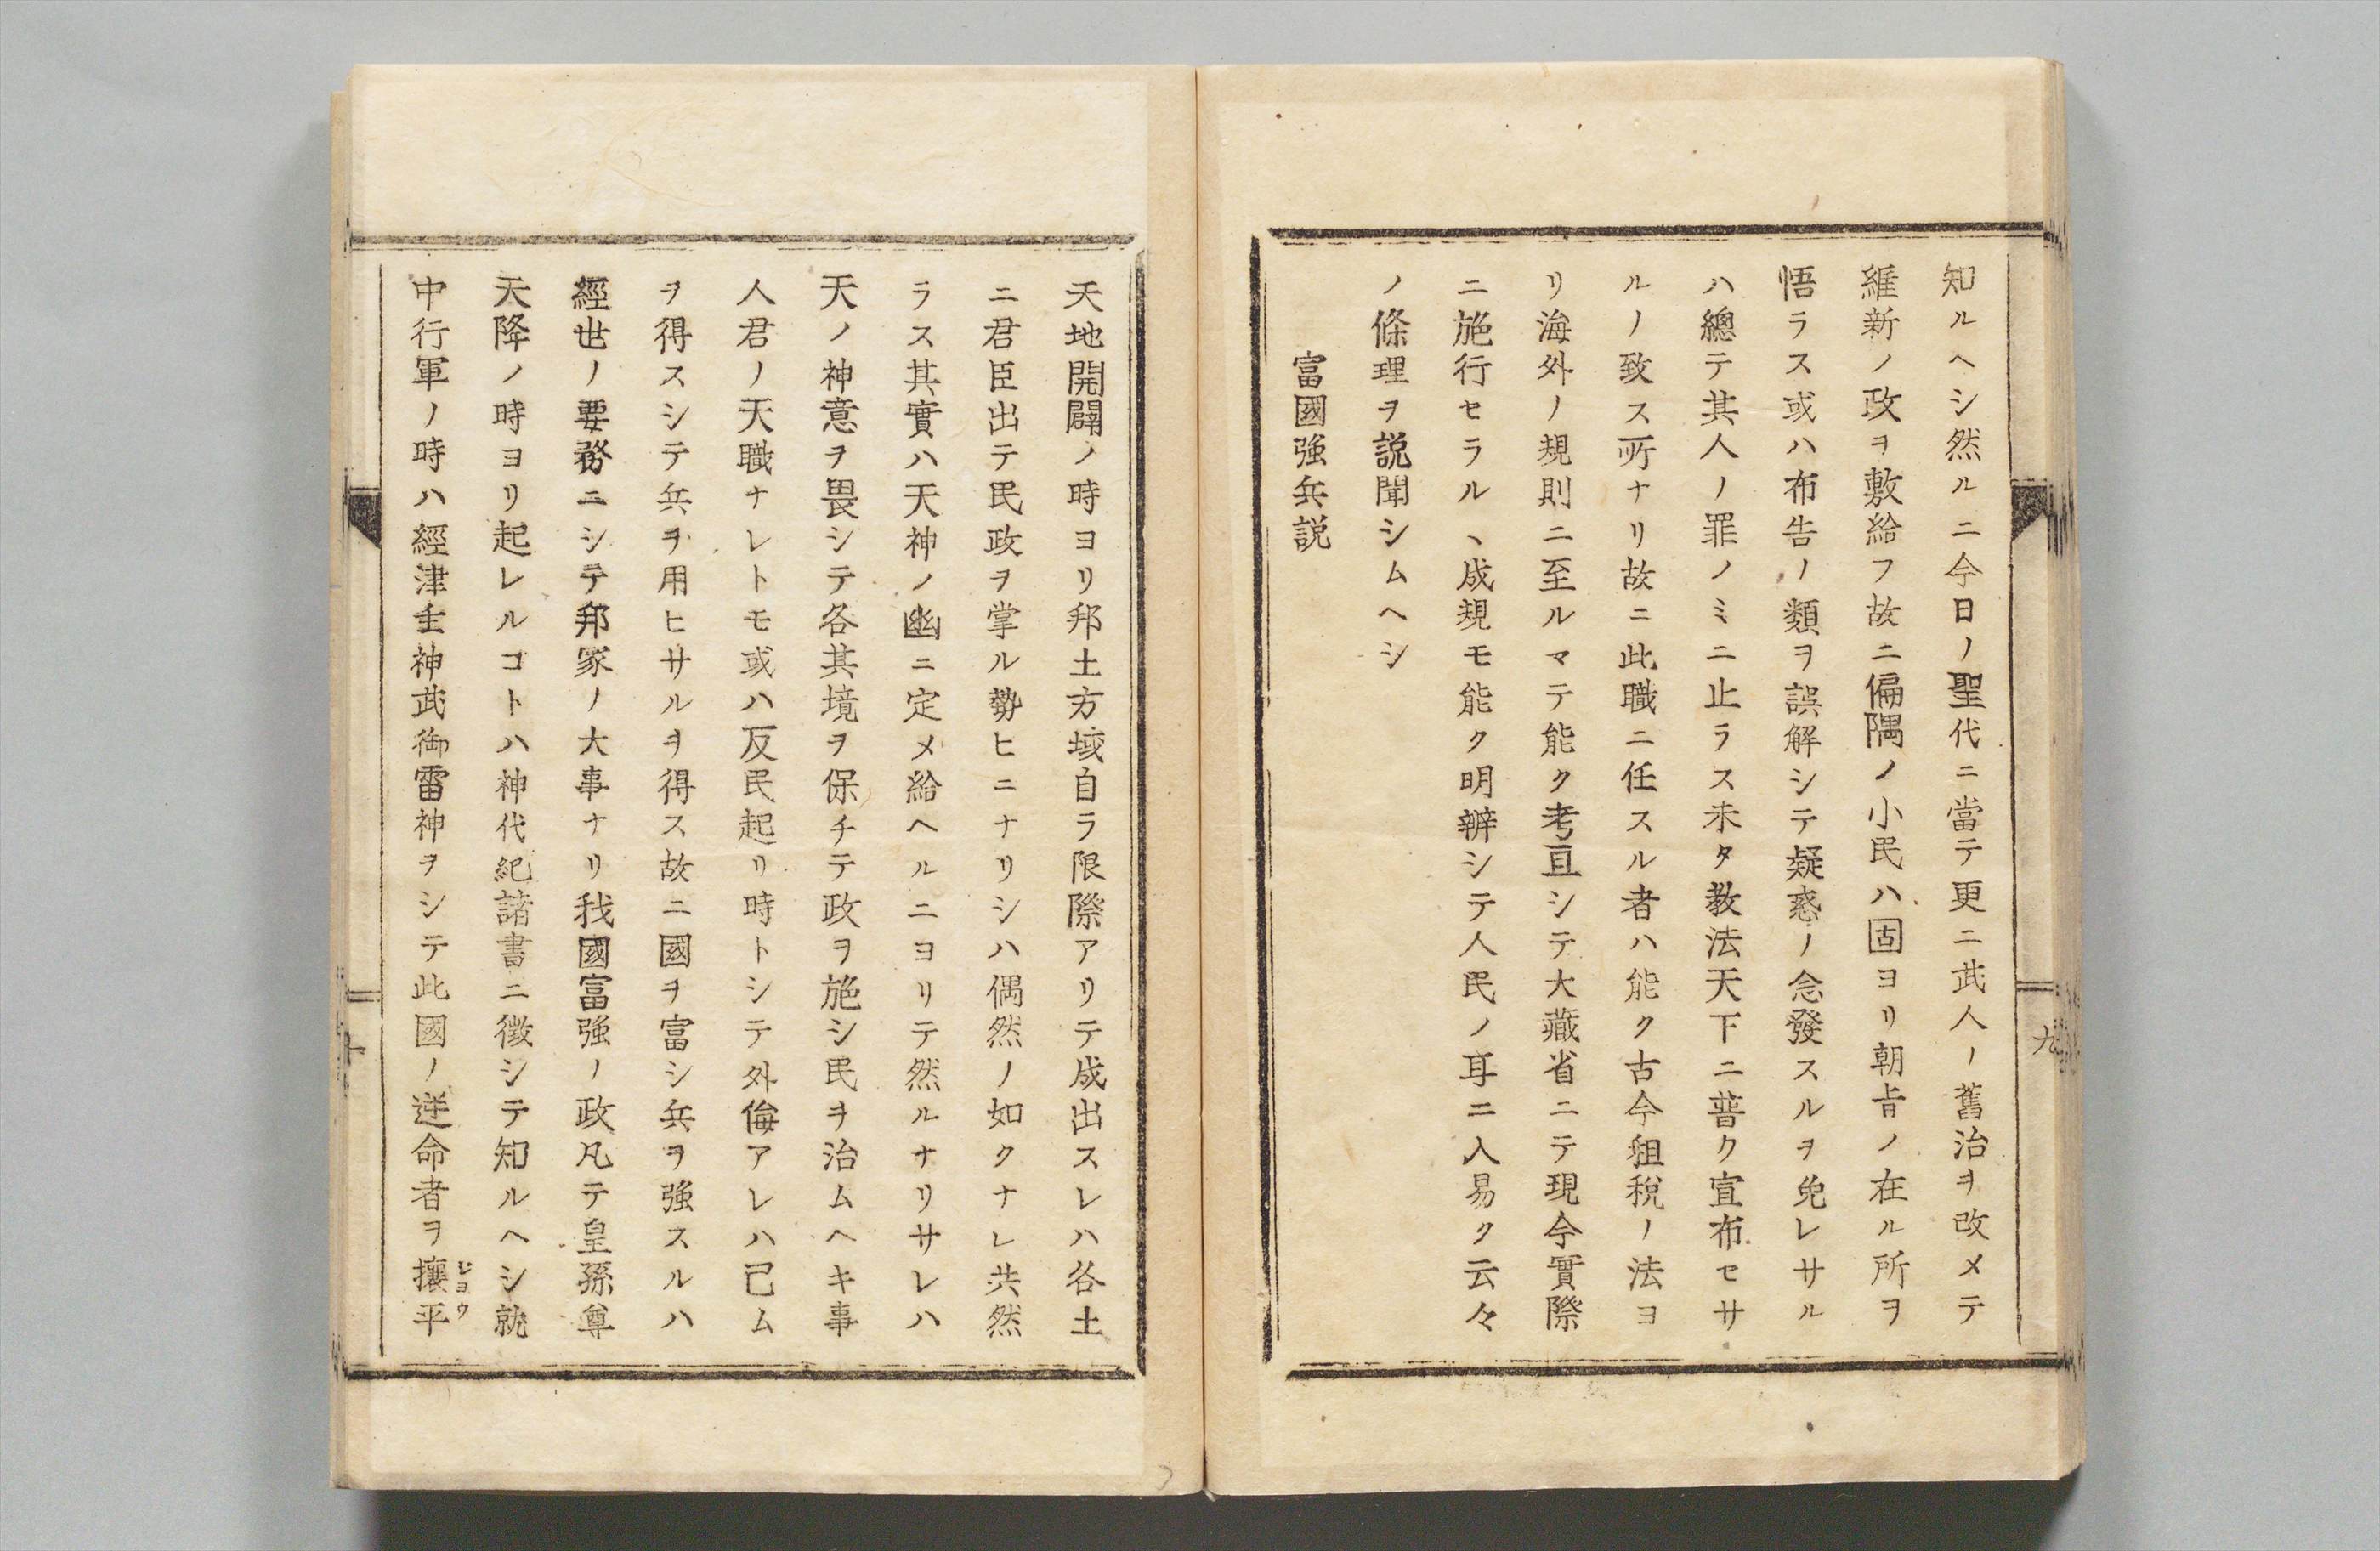 知ルヘシ然ルニ今日ノ聖代ニ當テ更ニ武人ノ舊治ヲ改メテ
維新ノ政ヲ敷給フ故ニ偏隅ノ小民ハ固ヨリ朝旨ノ在ル所ヲ
悟ラス或ハ布告ノ類ヲ誤解シテ疑惑ノ念發スルヲ免レサル
ハ總テ其人ノ罪ノミニ止ラス未タ教法天下ニ普ク宣布セサ
ルノ致ス所ナリ故ニ此職ニ任スル者ハ能ク古今租税ノ法ヨ
リ海外ノ規則ニ至ルマテ能ク考亘シテ大藏省ニテ現今實際
ニ施行セラルヽ成規モ能ク明辨シテ人民ノ耳ニ入易ク云々
ノ條理ヲ説聞シムヘシ
富國強兵説
九
天地開闢ノ時ヨリ邦土方域自ラ限際アリテ成出スレハ各土
ニ君臣出テ民政ヲ掌ル勢ヒニナリシハ偶然ノ如クナレ共然
ラス其實ハ天神ノ幽ニ定メ給ヘルニヨリテ然ルナリサレハ
天ノ神意ヲ畏シテ各其境ヲ保チテ政ヲ施シ民ヲ治ムヘキ事
人君ノ天職ナレトモ或ハ反民起リ時トシテ外侮アレハ已ム
ヲ得スシテ兵ヲ用ヒサルヲ得ス故ニ國ヲ富シ兵ヲ強スルハ
經世ノ要務ニシテ邦家ノ大事ナリ我國富強ノ政凡テ皇孫尊
天降ノ時ヨリ起レルコトハ神代紀諸書ニ徴シテ知ルヘシ就
中行軍ノ時ハ經津主神武御雷神ヲシテ此國ノ逆命者ヲ攘平
ジヨウ
十